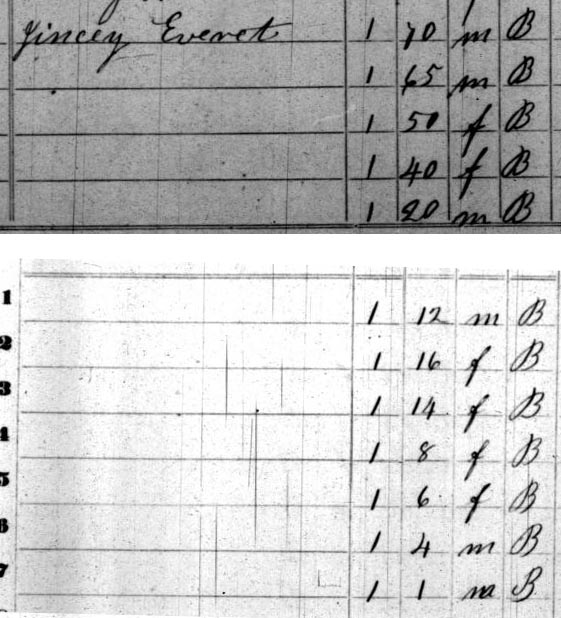 Jincey Everet 1 70 m B
1 65 m B
1 50 f B
1 40 f B
1 20 m B
1 1 12 m B
2 1 16 f B
3 1 14 f B
4 1 8 f B
5 1 6 f B
6 1 4 m B
7 1 1 m B